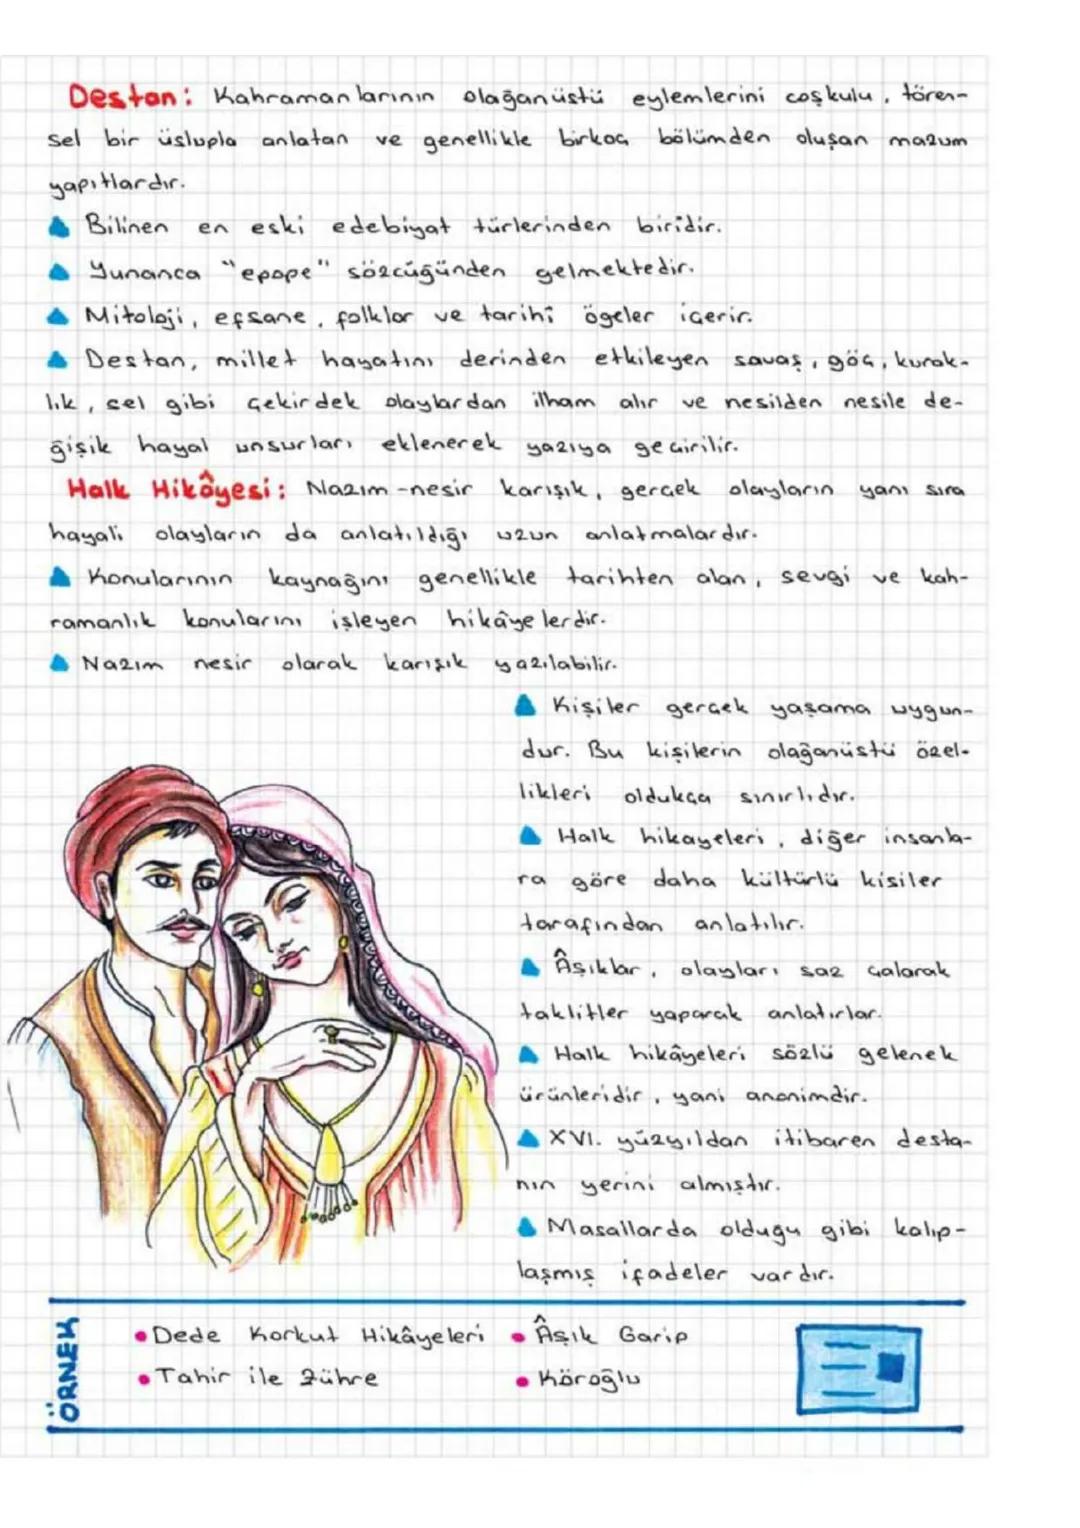 Destan: Kahramanlarının olağanüstü eylemlerini coşkulu, tören-
sel bir üslupla anlatan ve genellikle birkaç bölümden oluşan mazum
yapıtlardır.
▲ Bilinen en eski edebiyat türlerinden biridir.
▲ Yunanca "epope" sözcüğünden gelmektedir.
▲ Mitoloji, efsane, folklor ve tarihî ögeler içerir.
▲ Destan, millet hayatını derinden etkileyen savaş, göç, kurak-
lık, sel gibi çekirdek olaylardan ilham alır ve nesilden nesile de-
ğişik hayal unsurları eklenerek yazıya geçirilir.
Halk Hikâyesi: Nazım-nesir karışık, gerçek olayların yanı sıra
hayali olayların da anlatıldığı uzun anlatmalardır.
▲ Konularının kaynağını genellikle tarihten alan, sevgi ve kah-
ramanlık konularını işleyen hikâyelerdir.
▲ Nazım nesir olarak karışık yazılabilir.
▲ Kişiler gerçek yaşama uygun-
dur. Bu kişilerin olağanüstü özel-
likleri oldukça sınırlıdır.
▲ Halk hikayeleri, diğer insanla-
ra göre daha kültürlü kisiler
tarafından anlatılır.
▲ Âşıklar, olayları saz çalarak
taklitler yaparak anlatırlar.
▲ Halk hikâyeleri sözlü gelenek
ürünleridir, yani anonimdir.
▲ XVI. yüzyıldan itibaren desta-
nın yerini almıştır.
▲ Masallarda olduğu gibi kalıp-
laşmış ifadeler vardır.
ÖRNEK
• Dede Korkut Hikâyeleri • Âşık Garip
• Tahir ile Zühre • Köroğlu